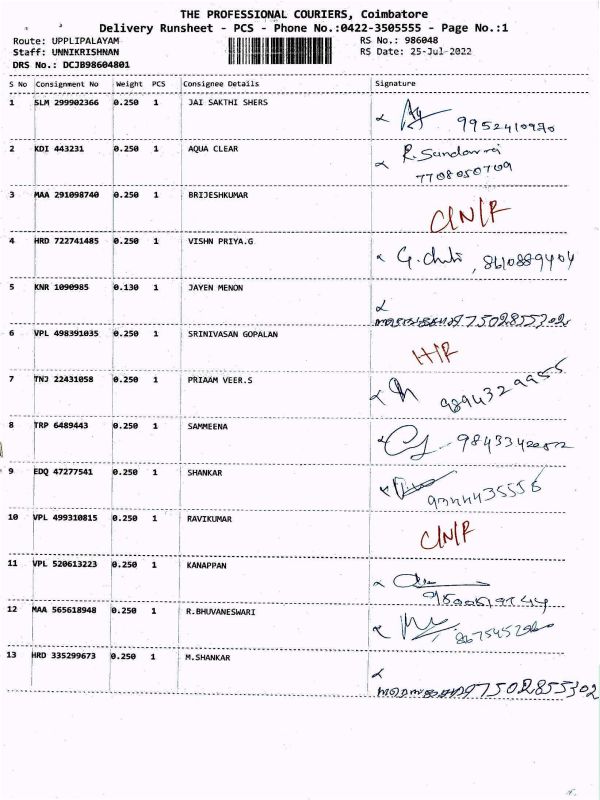 THE PROFESSIONAL COURIERS, Coimbatore
Delivery Runsheet - PCS - Phone No.:0422-3505555 - Page No.:1
Route: UPPLIPALAYAM
Staff: UNNIKRISHNAN
DRS No.: DCJB98604801
RS No.: 986048
RS Date: 25-Jul-2022
S No Consignment No Weight PCS Consignee Details Signature
1 SLM 299902366 0.250 1 JAI SAKTHI SHERS 9952410970
2 KDI 443231 0.250 1 AQUA CLEAR R. Sundarraj
7708050709
3 MAA 291098740 0.250 1 BRIJESHKUMAR C/N/R
4 HRD 722741485 0.250 1 VISHN PRIYA.G 8610889404
5 KNR 1090985 0.130 1 JAYEN MENON 97502855302
6 VPL 498391035 0.250 1 SRINIVASAN GOPALAN H/R
7 TNJ 22431058 0.250 1 PRIAAM VEER.S 9894329955
8 TRP 6489443 0.250 1 SAMMEENA
9 EDQ 47277541 0.250 1 SHANKAR
10 VPL 499310815 0.250 1 RAVIKUMAR C/N/R
11 VPL 520613223 0.250 1 KANAPPAN
12 MAA 565618948 0.250 1 R.BHUVANESWARI
13 HRD 335299673 0.250 1 M.SHANKAR 97502855302